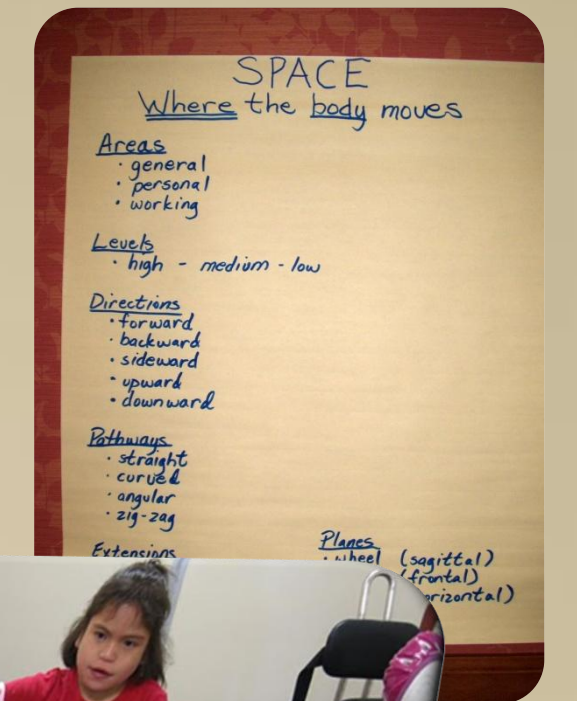 SPACE
Where the body moves
Areas
· general
· personal
· working
Levels
· high - medium - low
Directions
· forward
· backward
· sideward
· upward
· downward
Pathways
· straight
· curved
· angular
· zig-zag
Extensions
Planes
· wheel (sagittal)
(frontal)